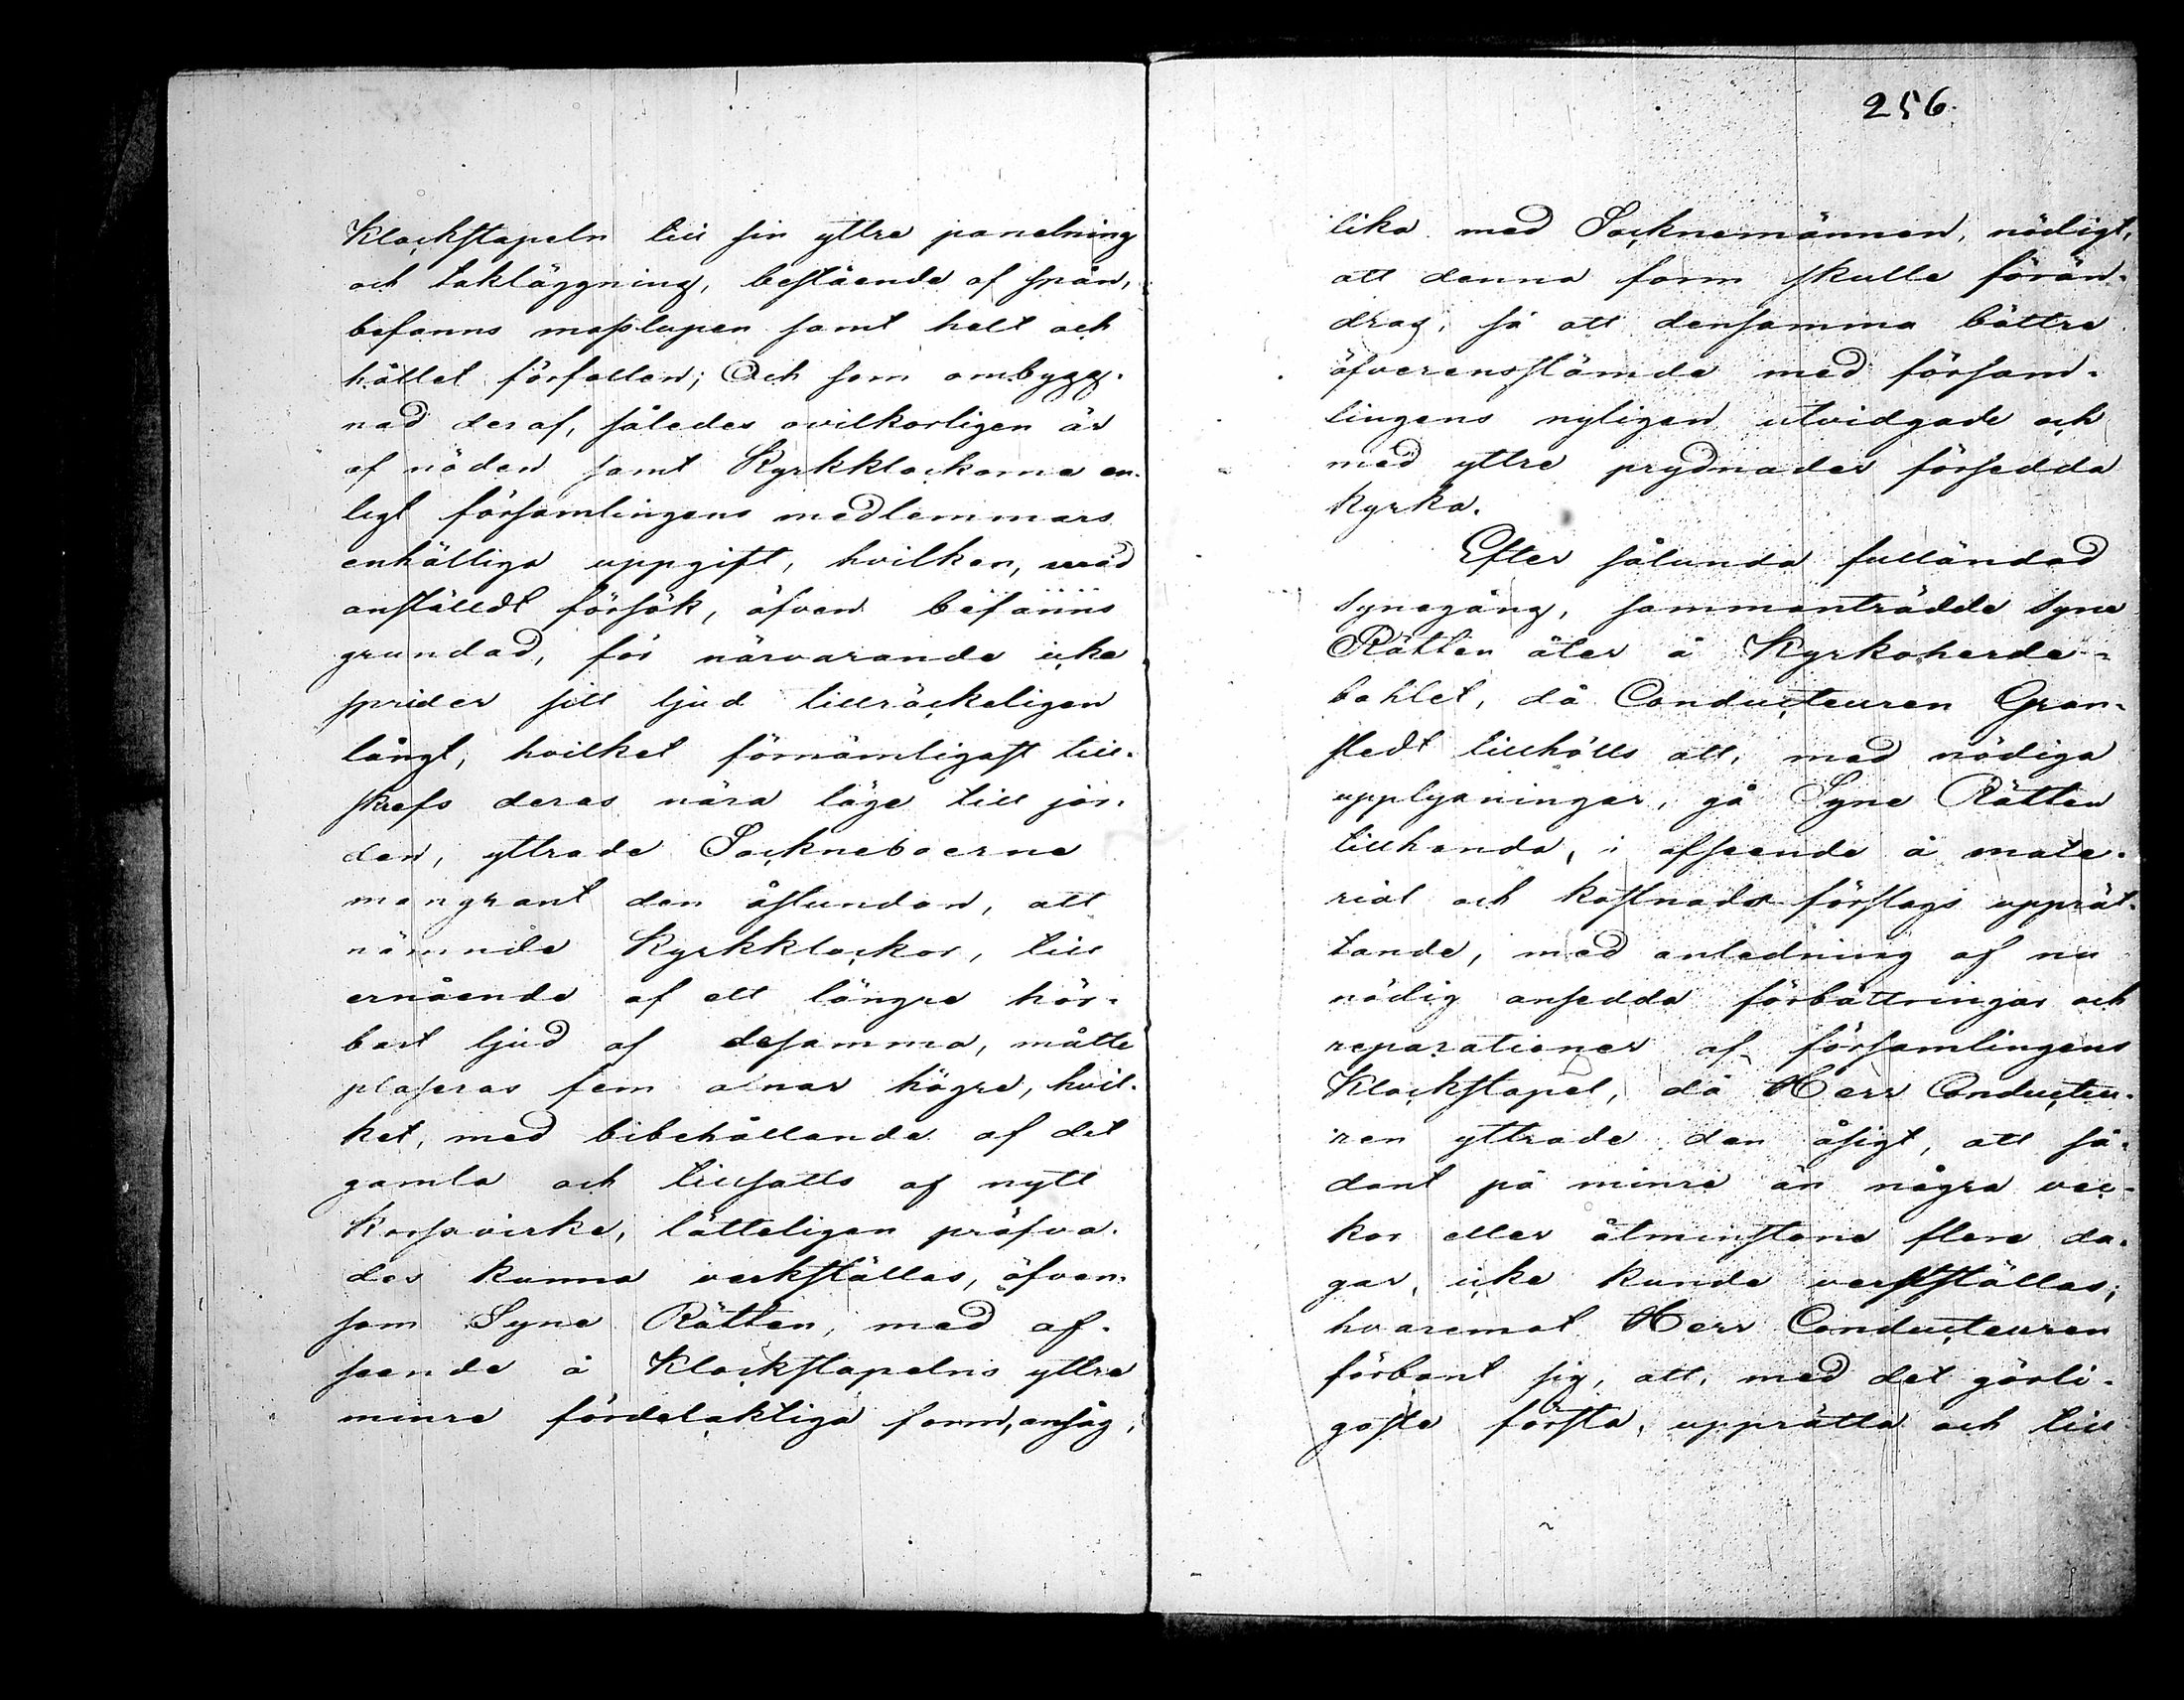 Klockstapeln till sin yttre panelning
och takläggning, bestående af spån,
befanns maslupen samt helt och
hållet förfallen; Och som ombygg-
nad deraf, således ovilkorligen är
af nöden samt Kyrkklockorna en-
ligt församlingens medlemmars
enhälliga uppgift, hvilken, med
anställdt försök, äfven befanns
grundad, för närvarande icke
sprider sitt ljud tillräckeligen
långt, hvilket förnämligast till-
skrefs deras nära läge till jor-
den, yttrade Sockneboerne
mangrant den åstundan, att
nämnde Kyrkklockor, till
ernående af ett längre hör-
bart ljud af desamma, måtte
plaseras fem alnar högre, hvil-
ket, med bibehållande af det
gamla och tillsatts af nytt
korssvirke, lätteligen pröfva-
des kunna verkställas, äfven-
som Syne Rätten, med af-
seende å Klockstapelns yttre
minre fördelaktiga form, ansåg,
256.
lika med Socknemännen, nödigt,
att denna form skulle förän-
dras, så att densamma bättre
öfverensstämde med försam-
lingens nyligen utvidgade och
med yttre prydnader försedda
kyrka.
Efter sålunda fulländad
synegång, sammanträdde Syne
Rätten åter å Kyrkoherde-
bohlet, då Conducteuren Gran-
stedt tillhölls att, med nödiga
upplysningar, gå Syne Rätten
tillhanda, i afseende å mate-
rial och kostnads förslags upprät-
tande, med anledning af nu
nödig ansedda förbättringar och
reparationer af församlingens
Klockstapel, då Herr Conducteu-
ren yttrade den åsigt, att så-
dant på minre än några vec-
kor eller åtminstone flere da-
gar, icke kunde verkställas;
hvaremot Herr Conducteuren
förbant sig, att, med det görli-
gaste första, upprätta och till